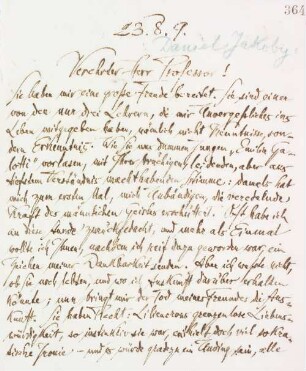 364
23. 8. 9.
Daniel Jakoby
Verehrter Herr Professor!
Sie haben mir eine große Freude bereitet. Sie sind einer
von den nur drei Lehrern, die mir Unvergeßliches ins
Leben mitgegeben haben, nämlich nicht Kenntnisse, son-
dern Erkenntnis. Wie Sie uns dummen Jungen „Emilia Ga-
lotti" vorlasen, mit Ihrer brüchigen, leidenden, aber aus
tiefstem Verständnis machthabenden Stimme: damals hat
mich zum ersten Mal, mich Unbändigen, die veredelnde
Kraft des männlichen Geistes erschüttert. Oft habe ich
an diese Stunde zurückgedacht, und mehr als Einmal
wollte ich Ihnen, nachdem ich reif dazu geworden war, ein
Zeichen meiner Dankbarkeit senden. Aber ich wußte nicht,
ob Sie noch lebten, und wo ich Auskunft darüber erhalten
könnte; nun bringt mir der Tod meines Freundes die Aus-
kunft. Sie haben Recht: Liliencrons grenzenlose Liebens-
würdigkeit, so instinktiv sie war, enthielt doch viel sokra-
tische Ironie — und es würde geradezu ein Unding sein, alle